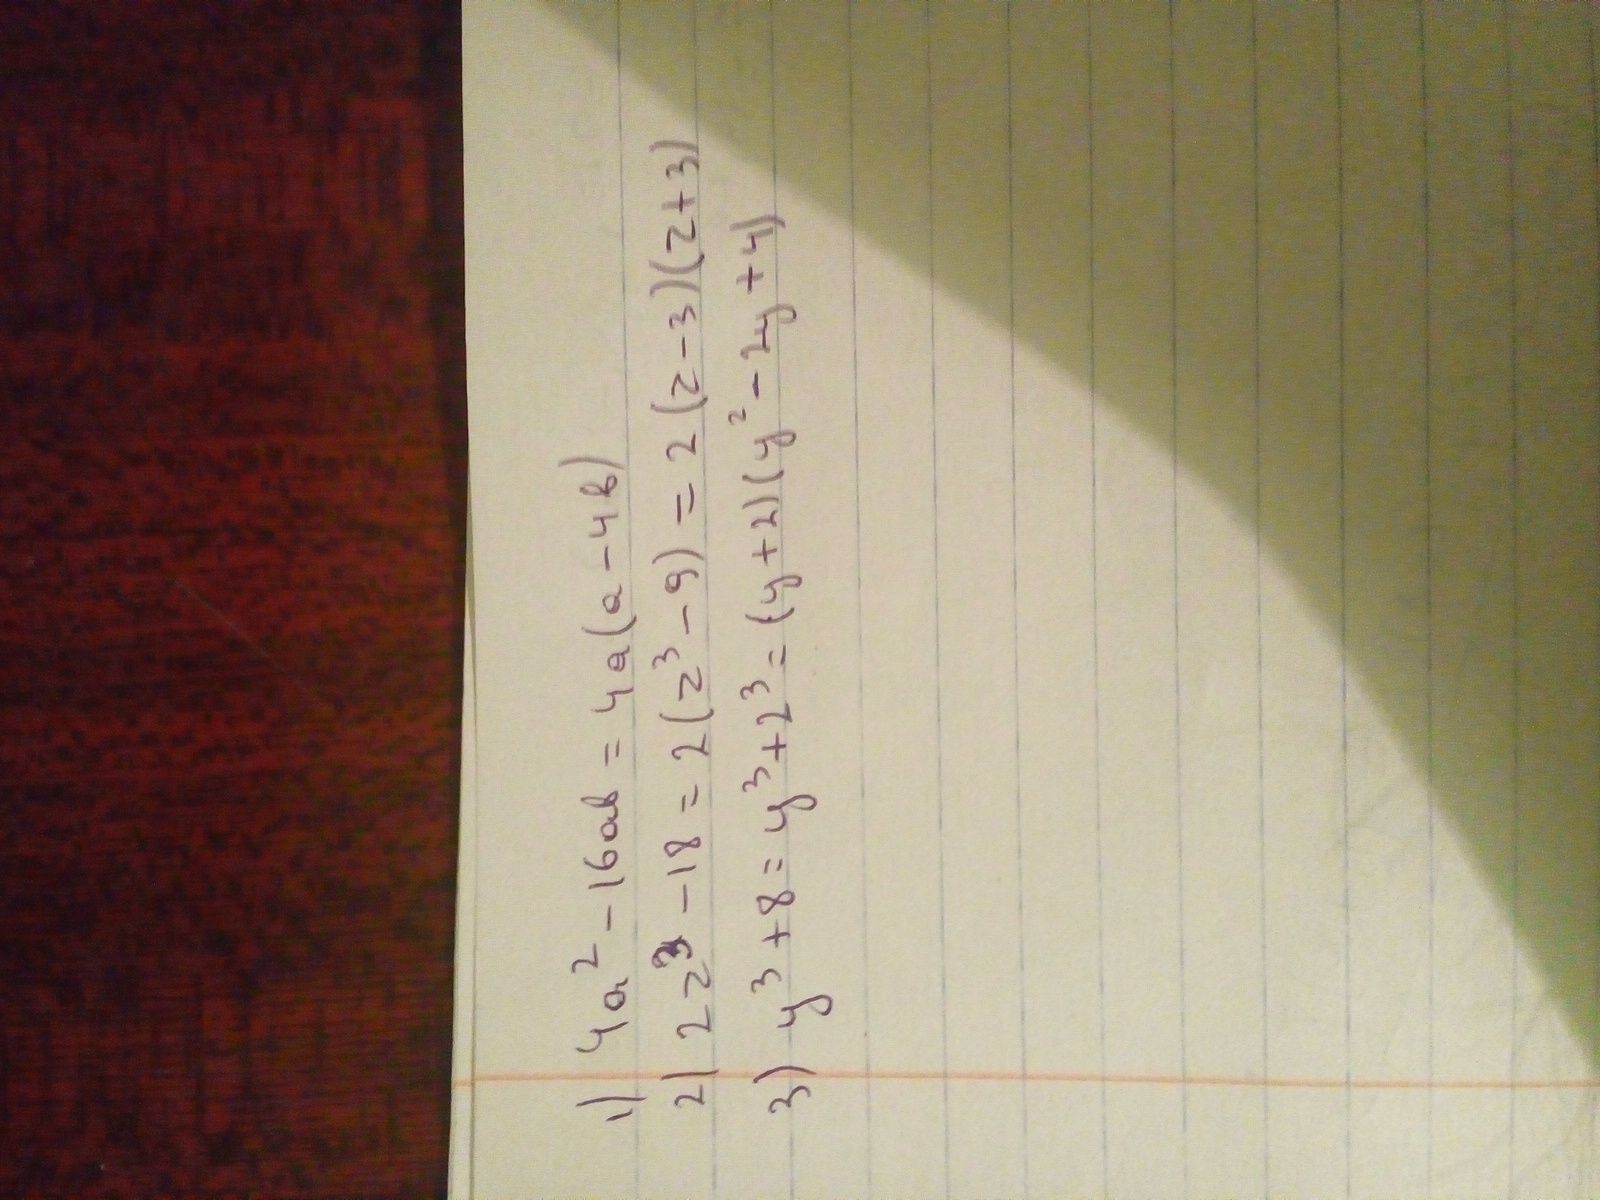 1) 4a² - 16ab = 4a(a - 4b)
2) 2z³ - 18 = 2(z³ - 9) = 2(z - 3)(z + 3)
3) y³ + 8 = y³ + 2³ = (y + 2)(y² - 2y + 4)